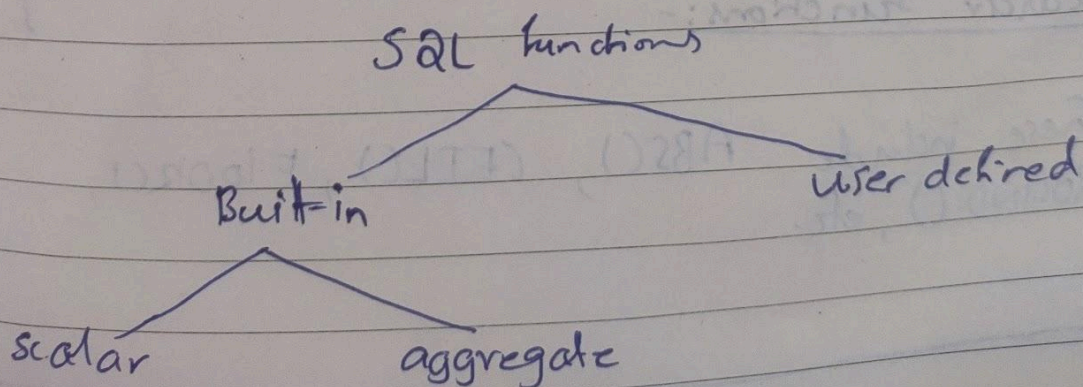 SQL functions
Built-in
user defined
scalar
aggregate